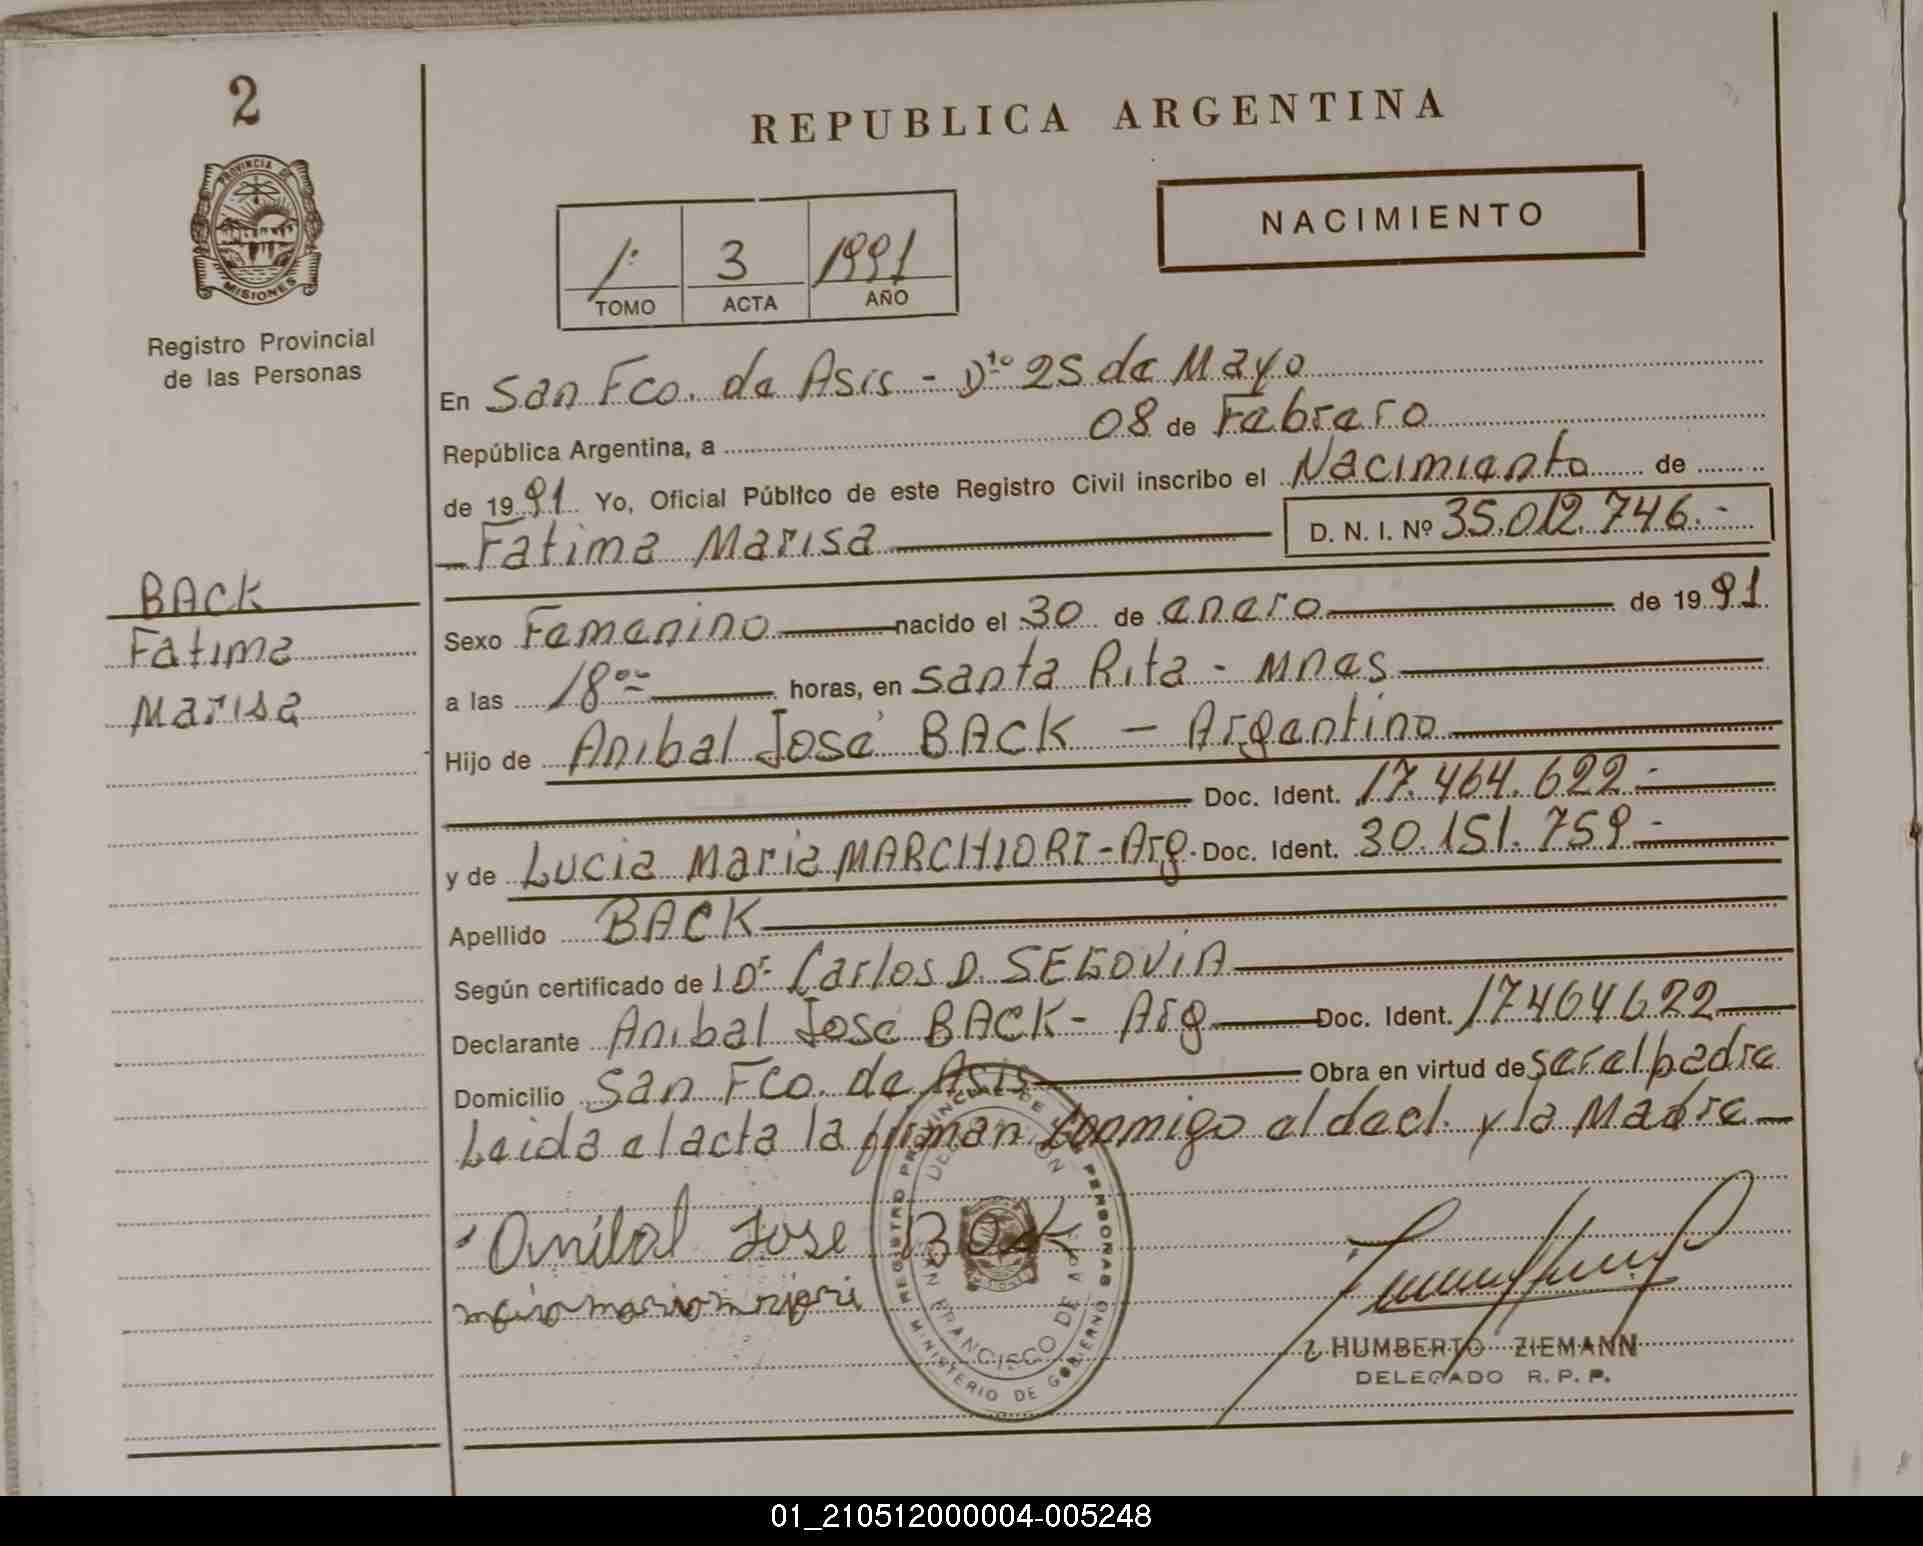 2
REPUBLICA ARGENTINA
PROVINCIA DE
MISIONES
Registro Provincial
de las Personas
NACIMIENTO
1º 3 1991
TOMO ACTA AÑO
En San Fco. de Asis - Dto 25 de Mayo
República Argentina, a 08 de Febrero
de 1991 Yo, Oficial Público de este Registro Civil inscribo el Nacimiento de
Fatima Marisa D. N. I. Nº 35.012.746.-
BACK
Fatima
Marisa
Sexo Femenino nacido el 30 de enero de 1991
a las 18 00 horas, en Santa Rita - Mnes
Hijo de Anibal José BACK - Argentino
Doc. Ident. 17.464.622.-
y de Lucia Maria MARCHIORI - Arg. Doc. Ident. 30.151.759-
Apellido BACK
Según certificado de 1 Dr. Carlos D. SEGOVIA
Declarante Anibal José BACK - Arg Doc. Ident. 17464622
Domicilio San Fco. de Asis Obra en virtud de ser el padre
Leida el acta la firman conmigo el decl. y la Madre
Anibal Jose BACK
REGISTRO PROVINCIAL DE LAS PERSONAS
MINISTERIO DE GOBIERNO
DELEGACION
SAN FRANCISCO DE ASIS
HUMBERTO ZIEMANN
DELEGADO R. P. P.
01_210512000004-005248